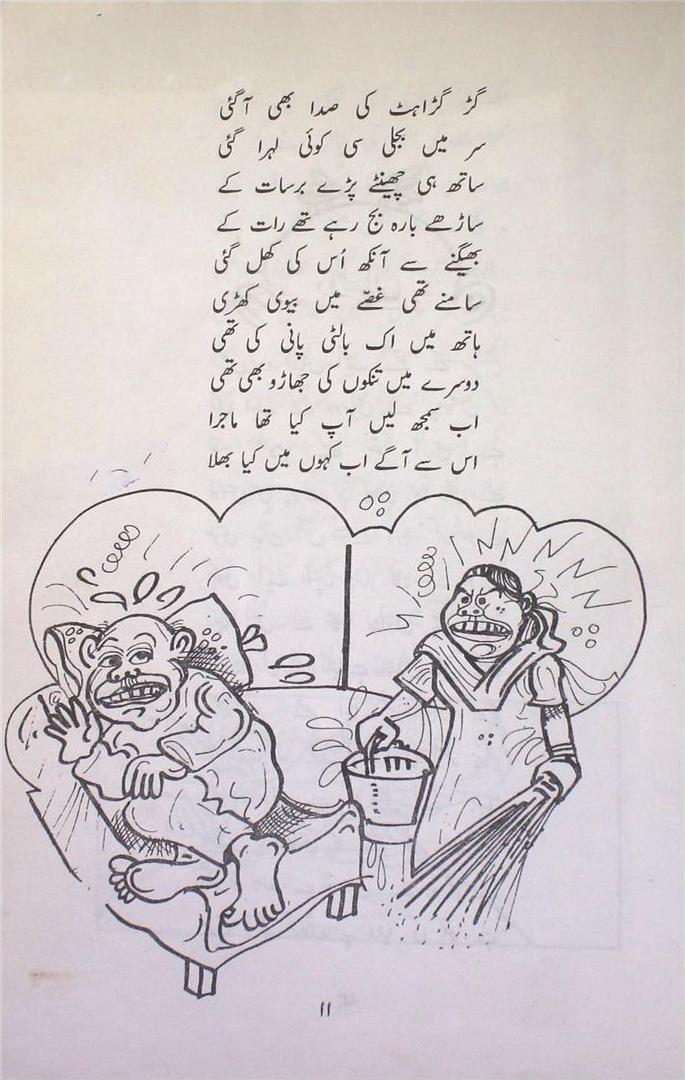 گڑ گڑاہٹ کی صدا بھی آگئی
سر میں بجلی سی کوئی لہرا گئی
ساتھ ہی چھینٹے پڑے برسات کے
ساڑھے بارہ بج رہے تھے رات کے
بھیگنے سے آنکھ اُس کی کھل گئی
سامنے تھی غصّے میں بیوی کھڑی
ہاتھ میں اک بالٹی پانی کی تھی
دوسرے میں تنکوں کی جھاڑو بھی تھی
اب سمجھ لیں آپ کیا تھا ماجرا
اس سے آگے اب کہوں میں کیا بھلا
۱۱